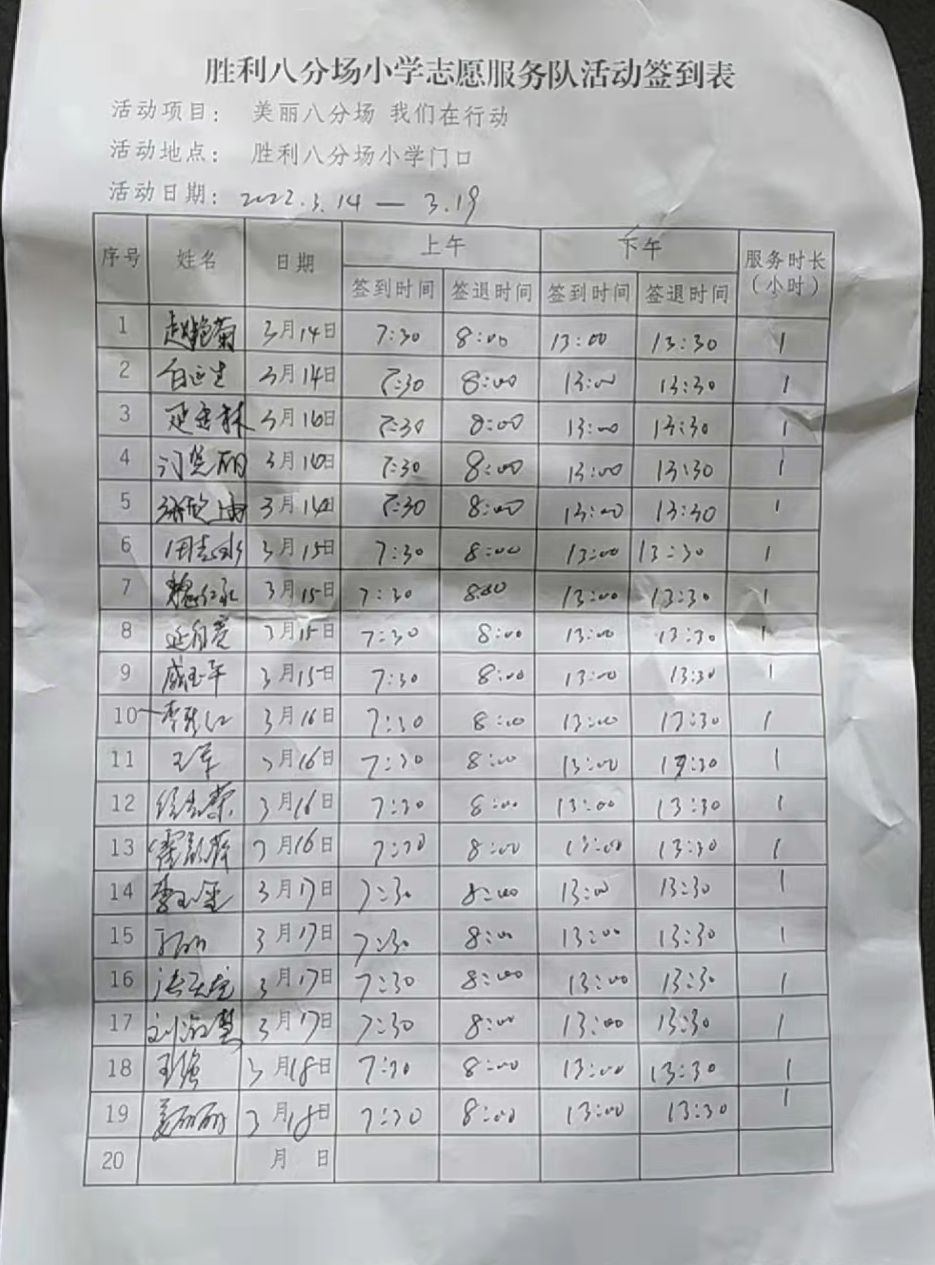 胜利八分场小学志愿服务队活动签到表
活动项目： 美丽八分场 我们在行动
活动地点： 胜利八分场小学门口
活动日期：2022.3.14 — 3.19
序号 姓名 日期 上午 下午 服务时长（小时）
签到时间 签退时间 签到时间 签退时间
1 赵艳菊 3月14日 7:30 8:00 13:00 13:30 1
2 3月14日 7:30 8:00 13:00 13:30 1
3 3月 日 7:30 8:00 13:00 13:30 1
4 3月 日 7:30 8:00 13:00 13:30 1
5 3月14日 7:30 8:00 13:00 13:30 1
6 3月15日 7:30 8:00 13:00 13:30 1
7 3月15日 7:30 8:00 13:00 13:30 1
8 3月15日 7:30 8:00 13:00 13:30 1
9 3月15日 7:30 8:00 13:00 13:30 1
10 3月16日 7:30 8:00 13:00 1
11 王军 3月16日 7:30 8:00 13:00 1
12 3月16日 7:30 8:00 13:00 13:30 1
13 3月16日 8:00 13:00 13:30 1
14 李玉金 3月17日 7:30 8:00 13:00 13:30 1
15 3月17日 7:30 8:00 13:00 13:30 1
16 3月17日 7:30 8:00 13:00 13:30 1
17 刘淑慧 3月17日 7:30 8:00 13:00 13:30 1
18 王强 3月18日 7:30 8:00 13:00 13:30 1
19 姜丽丽 3月18日 7:30 8:00 13:00 13:30 1
20 月 日